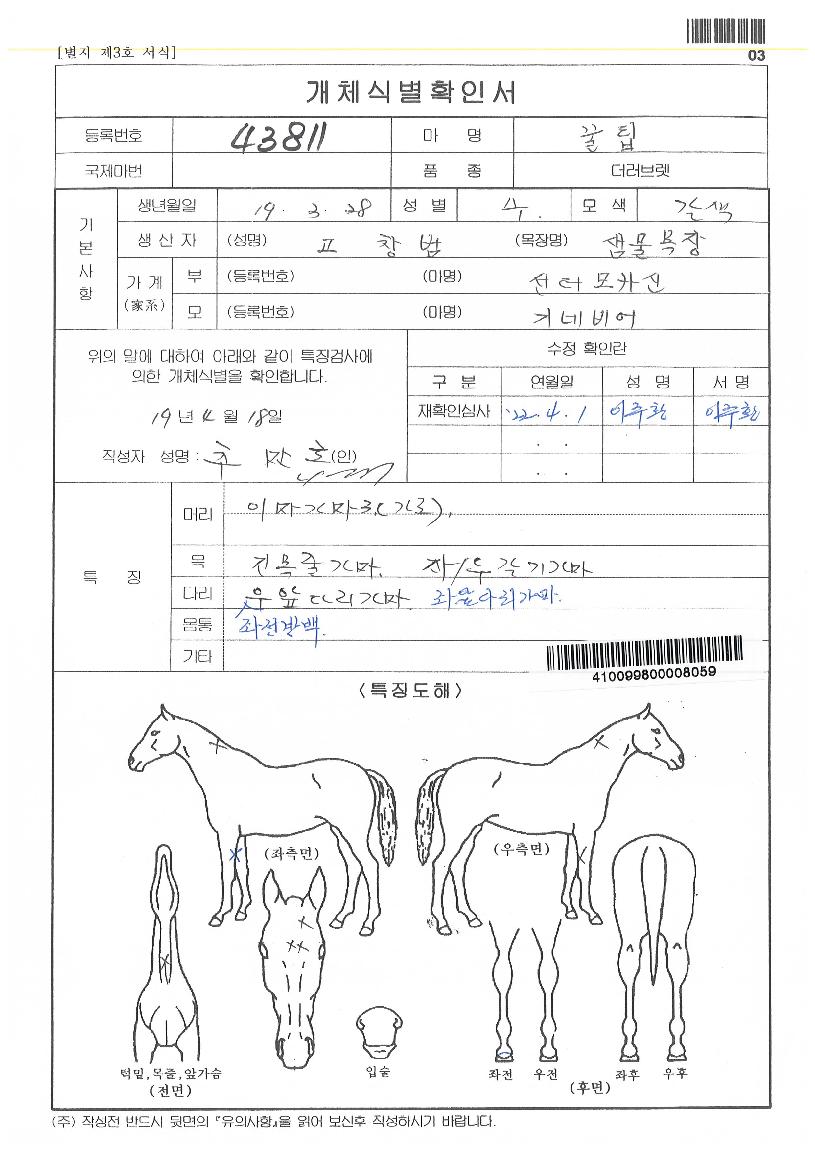 03
[별지 제3호 서식]
개체식별확인서
등록번호 43811 마 명 꿀팁
국제마번 품 종 더러브렛
기본사항
생년월일 19. 3. 28 성 별 수. 모 색 갈색
생 산 자 (성명) 표 창 범 (목장명) 샘물목장
가 계 (家系)
부 (등록번호) (마명) 선더모카신
모 (등록번호) (마명) 거네비어
위의 말에 대하여 아래와 같이 특징검사에
의한 개체식별을 확인합니다.
19년 4월 18일
작성자 성명 : 호 (인)
수정 확인란
구 분 연월일 성 명 서 명
재확인심사 '22. 4. 1 이주환 이주환
. .
. .
특 징
머리 이마가마3.(가로).
목 진목줄가마. 좌/우 각기가마
다리 우앞다리가마 좌앞다리가마.
몸통 좌전간백.
기타
410099800008059
<특징도해>
(좌측면)
(우측면)
턱밑,목줄,앞가슴
(전면)
입술
좌전 우전
좌후 우후
(후면)
(주) 작성전 반드시 뒷면의 『유의사항』을 읽어 보신후 작성하시기 바랍니다.